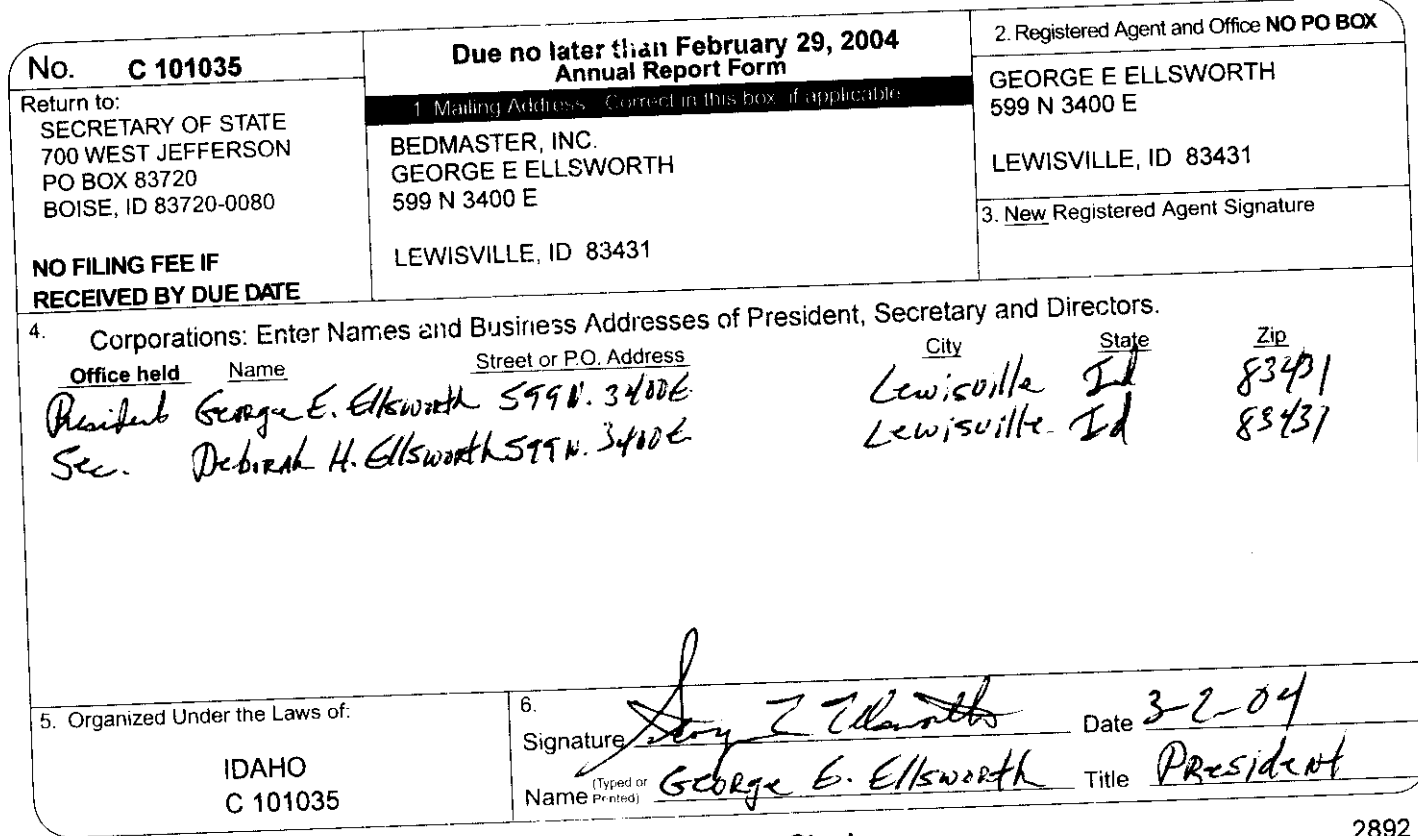 No. C 101035
Return to:
SECRETARY OF STATE
700 WEST JEFFERSON
PO BOX 83720
BOISE, ID 83720-0080
NO FILING FEE IF
RECEIVED BY DUE DATE
Due no later than February 29, 2004
Annual Report Form
1. Mailing Address: Correct in this box, if applicable
BEDMASTER, INC.
GEORGE E ELLSWORTH
599 N 3400 E
LEWISVILLE, ID 83431
2. Registered Agent and Office NO PO BOX
GEORGE E ELLSWORTH
599 N 3400 E
LEWISVILLE, ID 83431
3. New Registered Agent Signature
4. Corporations: Enter Names and Business Addresses of President, Secretary and Directors.
Office held Name Street or P.O. Address City State Zip
President George E. Ellsworth 599 N. 3400 E. Lewisville Id 83431
Sec. Deborah H. Ellsworth 599 N. 3400 E Lewisville Id 83431
5. Organized Under the Laws of:
IDAHO
C 101035
6.
Signature George E Ellsworth Date 3-2-04
Name (Typed or Printed) George E. Ellsworth Title President
2892